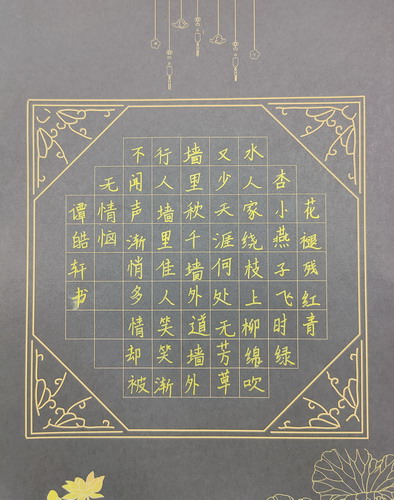 花褪残红青
杏小燕子飞时绿
水人家绕枝上柳绵吹
又少天涯何处无芳草
墙里秋千墙外道墙外
行人墙里佳人笑笑渐
不闻声渐悄多情却被
无情恼
谭皓轩书